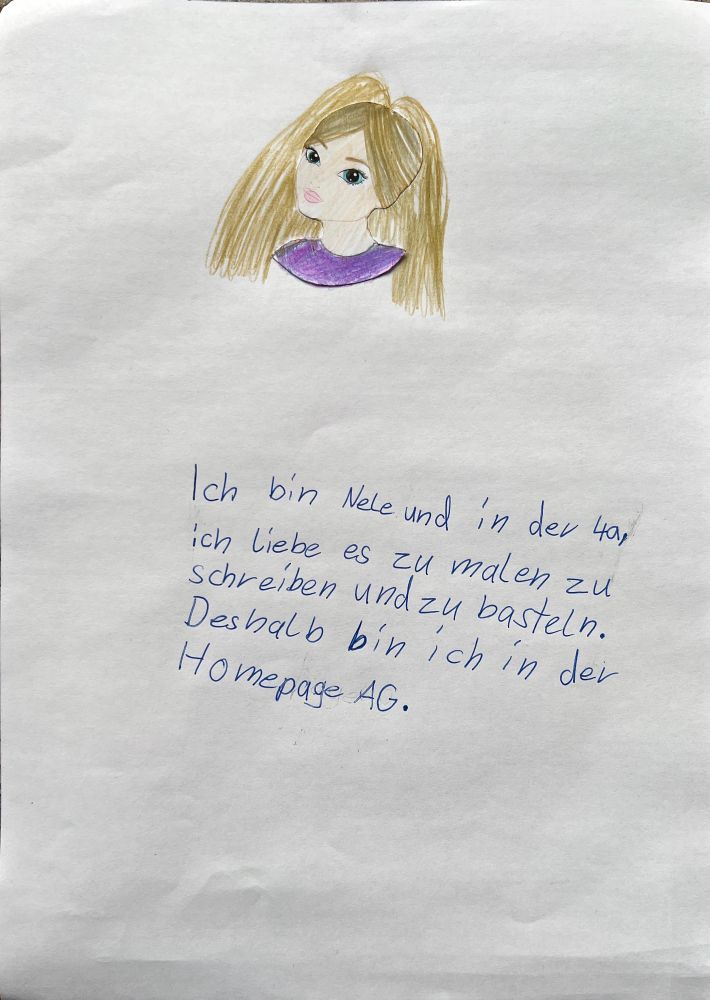 Ich bin Nele und in der 4a,
ich liebe es zu malen zu
schreiben und zu basteln.
Deshalb bin ich in der
Homepage AG.